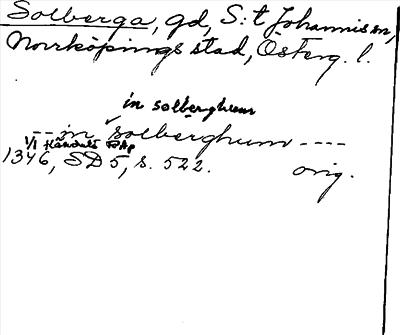 Solberga, gd, S:t Johannis sn,
Norrköpings stad, Österg. l.
in solberghum
--- in solberghum ----
1346, SD 5, s. 522. orig.